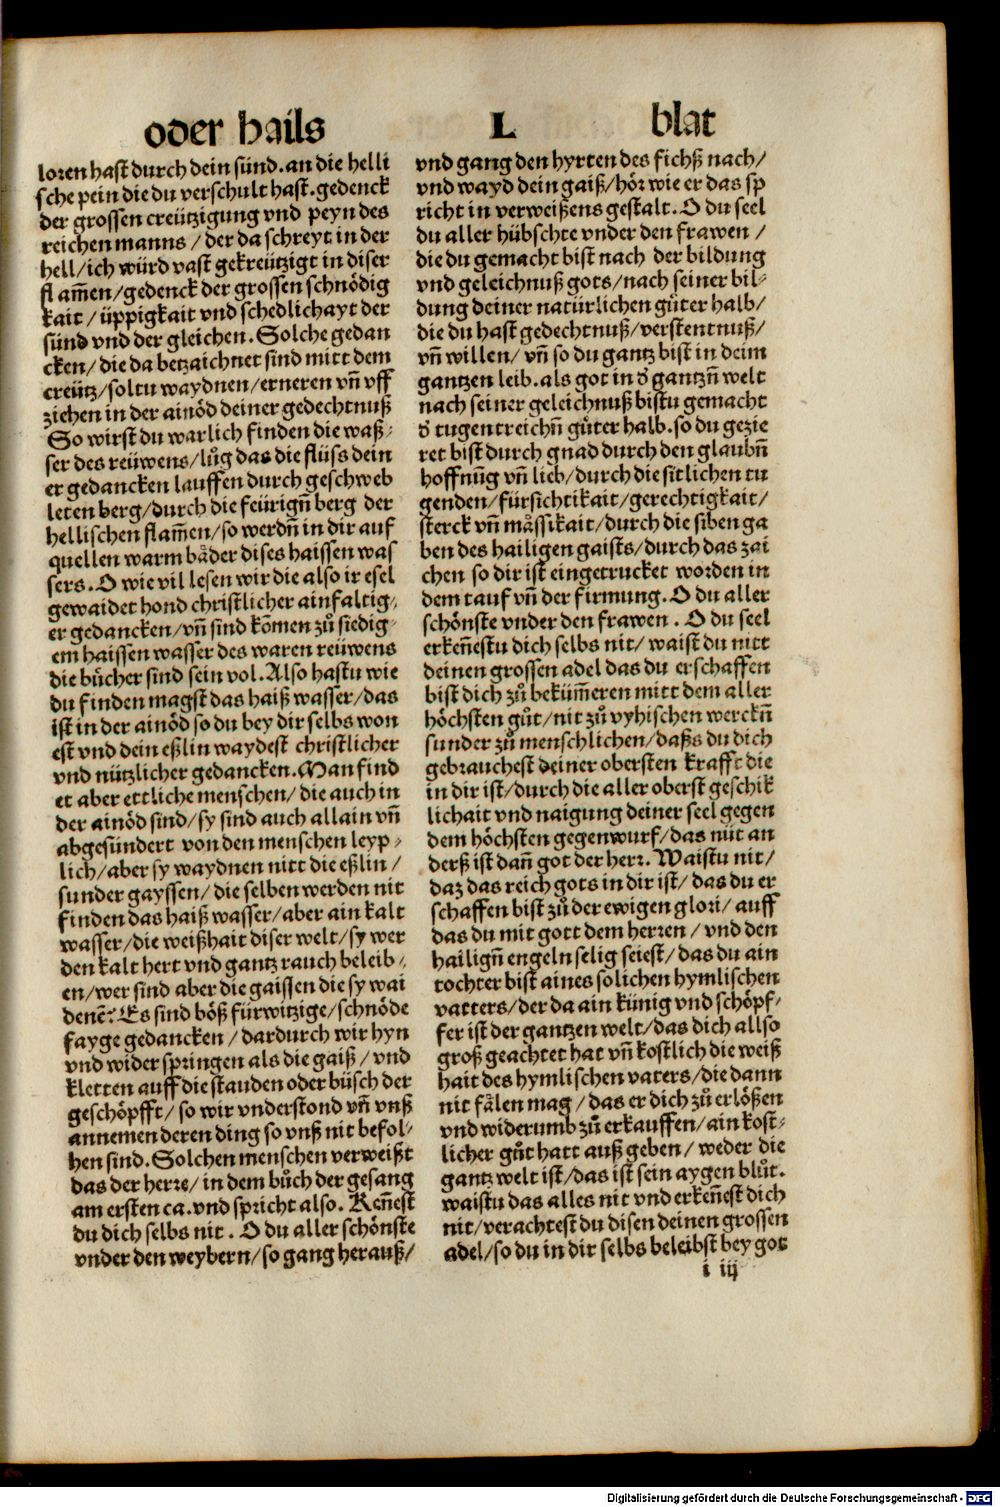 oder hails L blat
loren hast durch dein sünd. an die helli
sche pein die du verschult hast. gedenck
der grossen creützigung vnd peyn des
reichen manns / der da schreyt in der
hell / ich würd vast gekreützigt in diser
flam̄en / gedenck der grossen schnödig
kait / üppigkait vnd schedlichayt der
sünd vnd der gleichen. Solche gedan
cken / die da betzaichnet sind mitt dem
creütz / soltu waydnen / erneren vn̄ vff
ziehen in der ainöd deiner gedechtnuß
So wirst du warlich finden die waß⸗
ser des reüwens / lůg das die flüss dein
er gedancken lauffen durch geschweb
leten berg / durch die feürign̄ berg der
hellischen flam̄en / so werdn̄ in dir auf
quellen warm båder dises haissen was
sers. O wie vil lesen wir die also ir esel
gewaidet hond christlicher ainfaltig⸗
er gedancken / vn̄ sind kōmen zů siedig⸗
em haissen wasser des waren reüwens
die bücher sind sein vol. Also hastu wie
du finden magst das haiß wasser / das
ist in der ainöd so du bey dir selbs won
est vnd dein eßlin waydest christlicher
vnd nützlicher gedancken. Man find
et aber ettliche menschen / die auch in
der ainöd sind / sy sind auch allain vn̄
abgesündert von den menschen leyp⸗
lich / aber sy waydnen nitt die eßlin /
sunder gayssen / die selben werden nit
finden das haiß wasser / aber ain kalt
wasser / die weißhait diser welt / sy wer
den kalt hert vnd gantz rauch beleib⸗
en / wer sind aber die gaissen die sy wai
denē? Es sind böß fürwitzige / schnöde
fayge gedancken / dardurch wir hyn
vnd wider springen als die gaiß / vnd
kletten auff die stauden oder büsch der
geschöpfft / so wir vnderstond vn̄ vnß
annemen deren ding so vnß nit befol⸗
hen sind. Solchen menschen verweißt
das der herre / in dem bůch der gesang
am ersten ca. vnd spricht also. Ken̄est
du dich selbs nit. O du aller schönste
vnder den weybern / so gang herauß /
vnd gang den hyrten des fichß nach /
vnd wayd dein gaiß / hör wie er das sp
richt in verweißens gestalt. O du seel
du aller hübschte vnder den frawen /
die du gemacht bist nach der bildung
vnd geleichnuß gots / nach seiner bil⸗
dung deiner natürlichen gůter halb /
die du hast gedechtnuß / verstentnuß /
vn̄ willen / vn̄ so du gantz bist in deim
gantzen leib. als got in ð gantzn̄ welt
nach seiner geleichnuß bistu gemacht
ð tugentreichn̄ gůter halb. so du gezie
ret bist durch gnad durch den glaubn̄
hoffnūg vn̄ lieb / durch die sitlichen tu
genden / fürsichtikait / gerechtigkait /
sterck vn̄ måssikait / durch die siben ga
ben des hailigen gaists / durch das zai
chen so dir ist eingetrucket worden in
dem tauf vn̄ der firmung. O du aller
schönste vnder den frawen. O du seel
erken̄estu dich selbs nit / waist du nitt
deinen grossen adel das du erschaffen
bist dich zů beküm̄eren mitt dem aller
höchsten gůt / nit zů vyhischen werckn̄
sunder zů menschlichen / daßs du dich
gebrauchest deiner obersten krafft die
in dir ist / durch die aller oberst geschik
lichait vnd naigung deiner seel gegen
dem höchsten gegenwurf / das nüt an
derß ist dan̄ got der herr. Waistu nit /
daz das reich gots in dir ist / das du er
schaffen bist zů der ewigen glori / auff
das du mit gott dem herren / vnd den
hailign̄ engeln selig seiest / das du ain
tochter bist aines solichen hymlischen
vatters / der da ain künig vnd schöpf⸗
fer ist der gantzen welt / das dich allso
groß geachtet hat vn̄ kostlich die weiß
hait des hymlischen vaters / die dann
nit fålen mag / das er dich zů erlößen
vnd widerumb zů erkauffen / ain kost⸗
licher gůt hatt auß geben / weder die
gantz welt ist / das ist sein aygen blůt.
waistu das alles nit vnd erken̄est dich
nit / verachtest du disen deinen grossen
adel / so du in dir selbs beleibst bey got
i iij
Digitalisierung gefördert durch die Deutsche Forschungsgemeinschaft - DFG